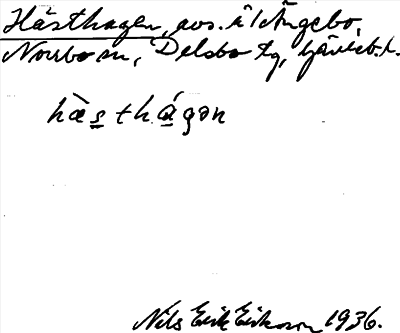 Hästhagen, avs. å Ängebo,
Norrbo sn, Delsbo tg, Gävleb. l.
hæ̀sthágən
Nils Erik Eriksson 1936.